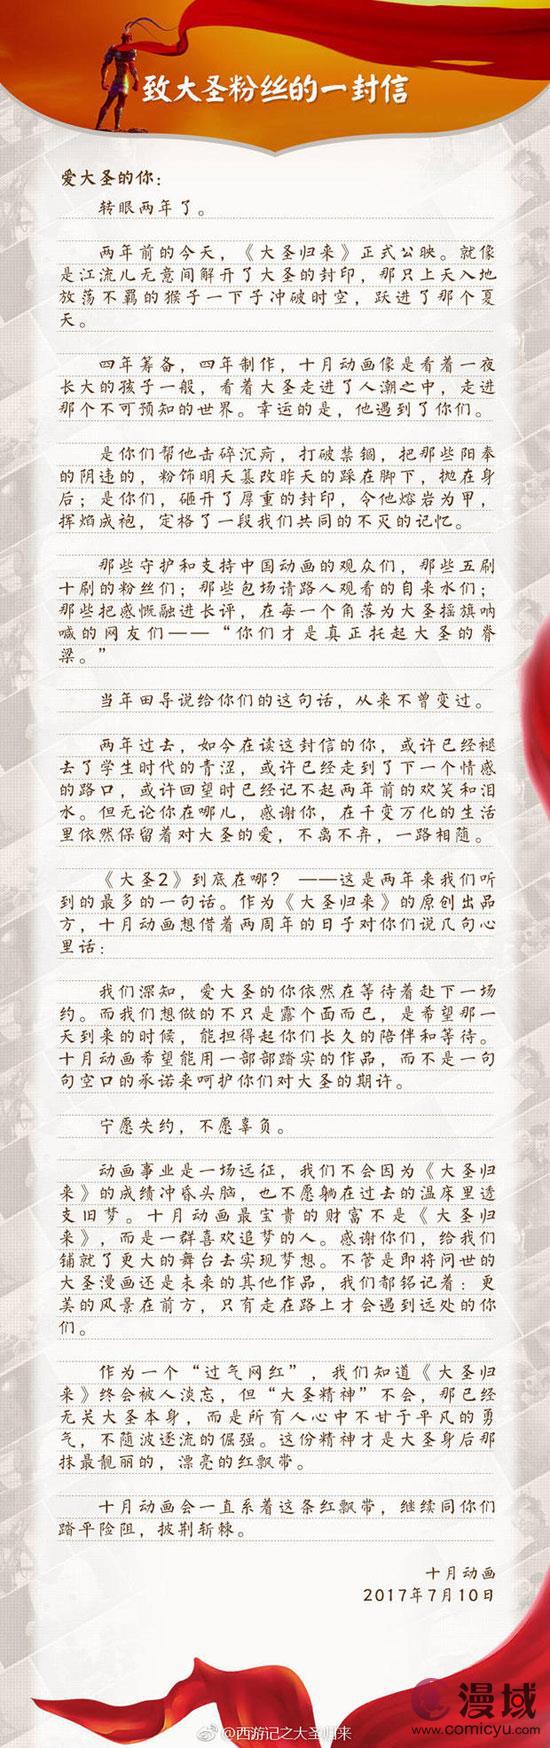 致大圣粉丝的一封信
爱大圣的你：
转眼两年了。
两年前的今天，《大圣归来》正式公映。就像
是江流儿无意间解开了大圣的封印，那只上天入地
放荡不羁的猴子一下子冲破时空，跃进了那个夏
天。
四年筹备，四年制作，十月动画像是看着一夜
长大的孩子一般，看着大圣走进了人潮之中，走进
那个不可预知的世界。幸运的是，他遇到了你们。
是你们帮他击碎沉疴，打破禁锢，把那些阳奉
的阴违的，粉饰明天篡改昨天的踩在脚下，抛在身
后；是你们，砸开了厚重的封印，令他熔岩为甲，
挥焰成袍，定格了一段我们共同的不灭的记忆。
那些守护和支持中国动画的观众们，那些五刷
十刷的粉丝们；那些包场请路人观看的自来水们；
那些把感慨融进长评，在每一个角落为大圣摇旗呐
喊的网友们——“你们才是真正托起大圣的脊
梁。”
当年田导说给你们的这句话，从来不曾变过。
两年过去，如今在读这封信的你，或许已经褪
去了学生时代的青涩，或许已经走到了下一个情感
的路口，或许回望时已经记不起两年前的欢笑和泪
水。但无论你在哪儿，感谢你，在千变万化的生活
里依然保留着对大圣的爱，不离不弃，一路相随。
《大圣2》到底在哪？ ——这是两年来我们听
到的最多的一句话。作为《大圣归来》的原创出品
方，十月动画想借着两周年的日子对你们说几句心
里话：
我们深知，爱大圣的你依然在等待着赴下一场
约。而我们想做的不只是露个面而已，是希望那一
天到来的时候，能担得起你们长久的陪伴和等待。
十月动画希望能用一部部踏实的作品，而不是一句
句空口的承诺来呵护你们对大圣的期许。
宁愿失约，不愿辜负。
动画事业是一场远征，我们不会因为《大圣归
来》的成绩冲昏头脑，也不愿躺在过去的温床里透
支旧梦。十月动画最宝贵的财富不是《大圣归
来》，而是一群喜欢追梦的人。感谢你们，给我们
铺就了更大的舞台去实现梦想。不管是即将问世的
大圣漫画还是未来的其他作品，我们都铭记着：更
美的风景在前方，只有走在路上才会遇到远处的你
们。
作为一个“过气网红”，我们知道《大圣归
来》终会被人淡忘，但“大圣精神”不会，那已经
无关大圣本身，而是所有人心中不甘于平凡的勇
气，不随波逐流的倔强。这份精神才是大圣身后那
抹最靓丽的，漂亮的红飘带。
十月动画会一直系着这条红飘带，继续同你们
踏平险阻，披荆斩棘。
十月动画
2017年7月10日
@西游记之大圣归来
漫域
www.comicyu.com